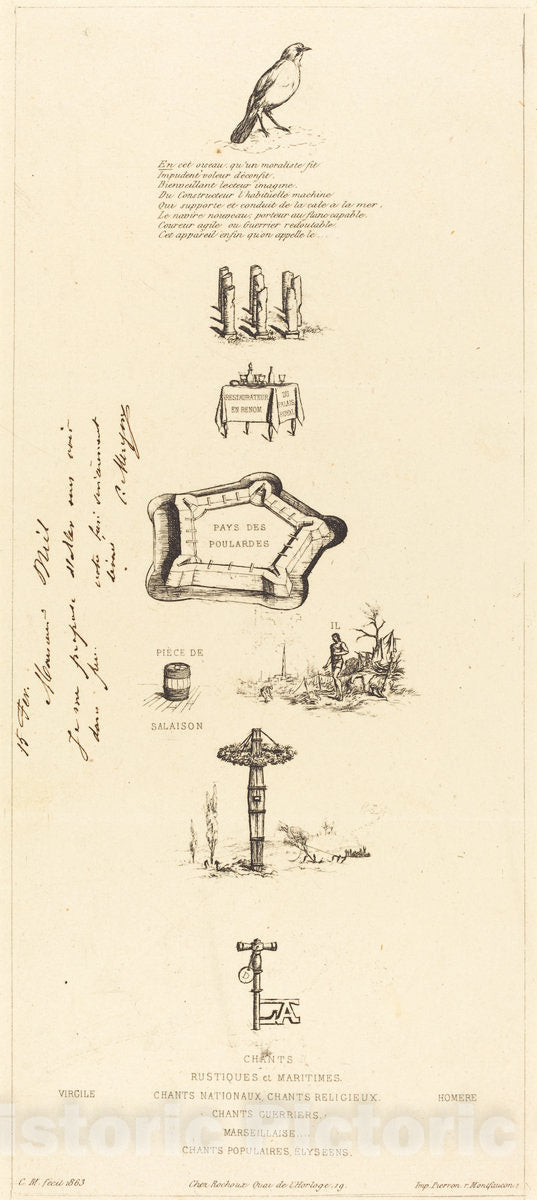 En cet oiseau, qu'un moraliste fit
Impudent voleur déconfit,
Bienveillant lecteur imagine,
Du Constructeur l'habituelle machine
Qui supporte et conduit de la cale à la mer,
Le navire nouveau; porteur au flanc capable,
Coureur agile ou Guerrier redoutable,
Cet appareil enfin qu'on appelle le...
RESTAURATEUR
EN RENOM.
DU
PALAIS
ROYAL
PAYS DES
POULARDES
15 Fev.
Monsieur Niel
Je me propose d'aller vous voir
dans peu.
votre
C. Meryon
PIÈCE DE
SALAISON
IL
D
LA
CHANTS
RUSTIQUES et MARITIMES.
VIRGILE
CHANTS NATIONAUX, CHANTS RELIGIEUX.
HOMERE
CHANTS GUERRIERS.
MARSEILLAISE....
CHANTS POPULAIRES, ELYSEENS.
historic historic
C. M. fecit 1863
Chez Rochoux Quai de l'Horloge, 19.
Imp. Pierron, r. Montfaucon, 1